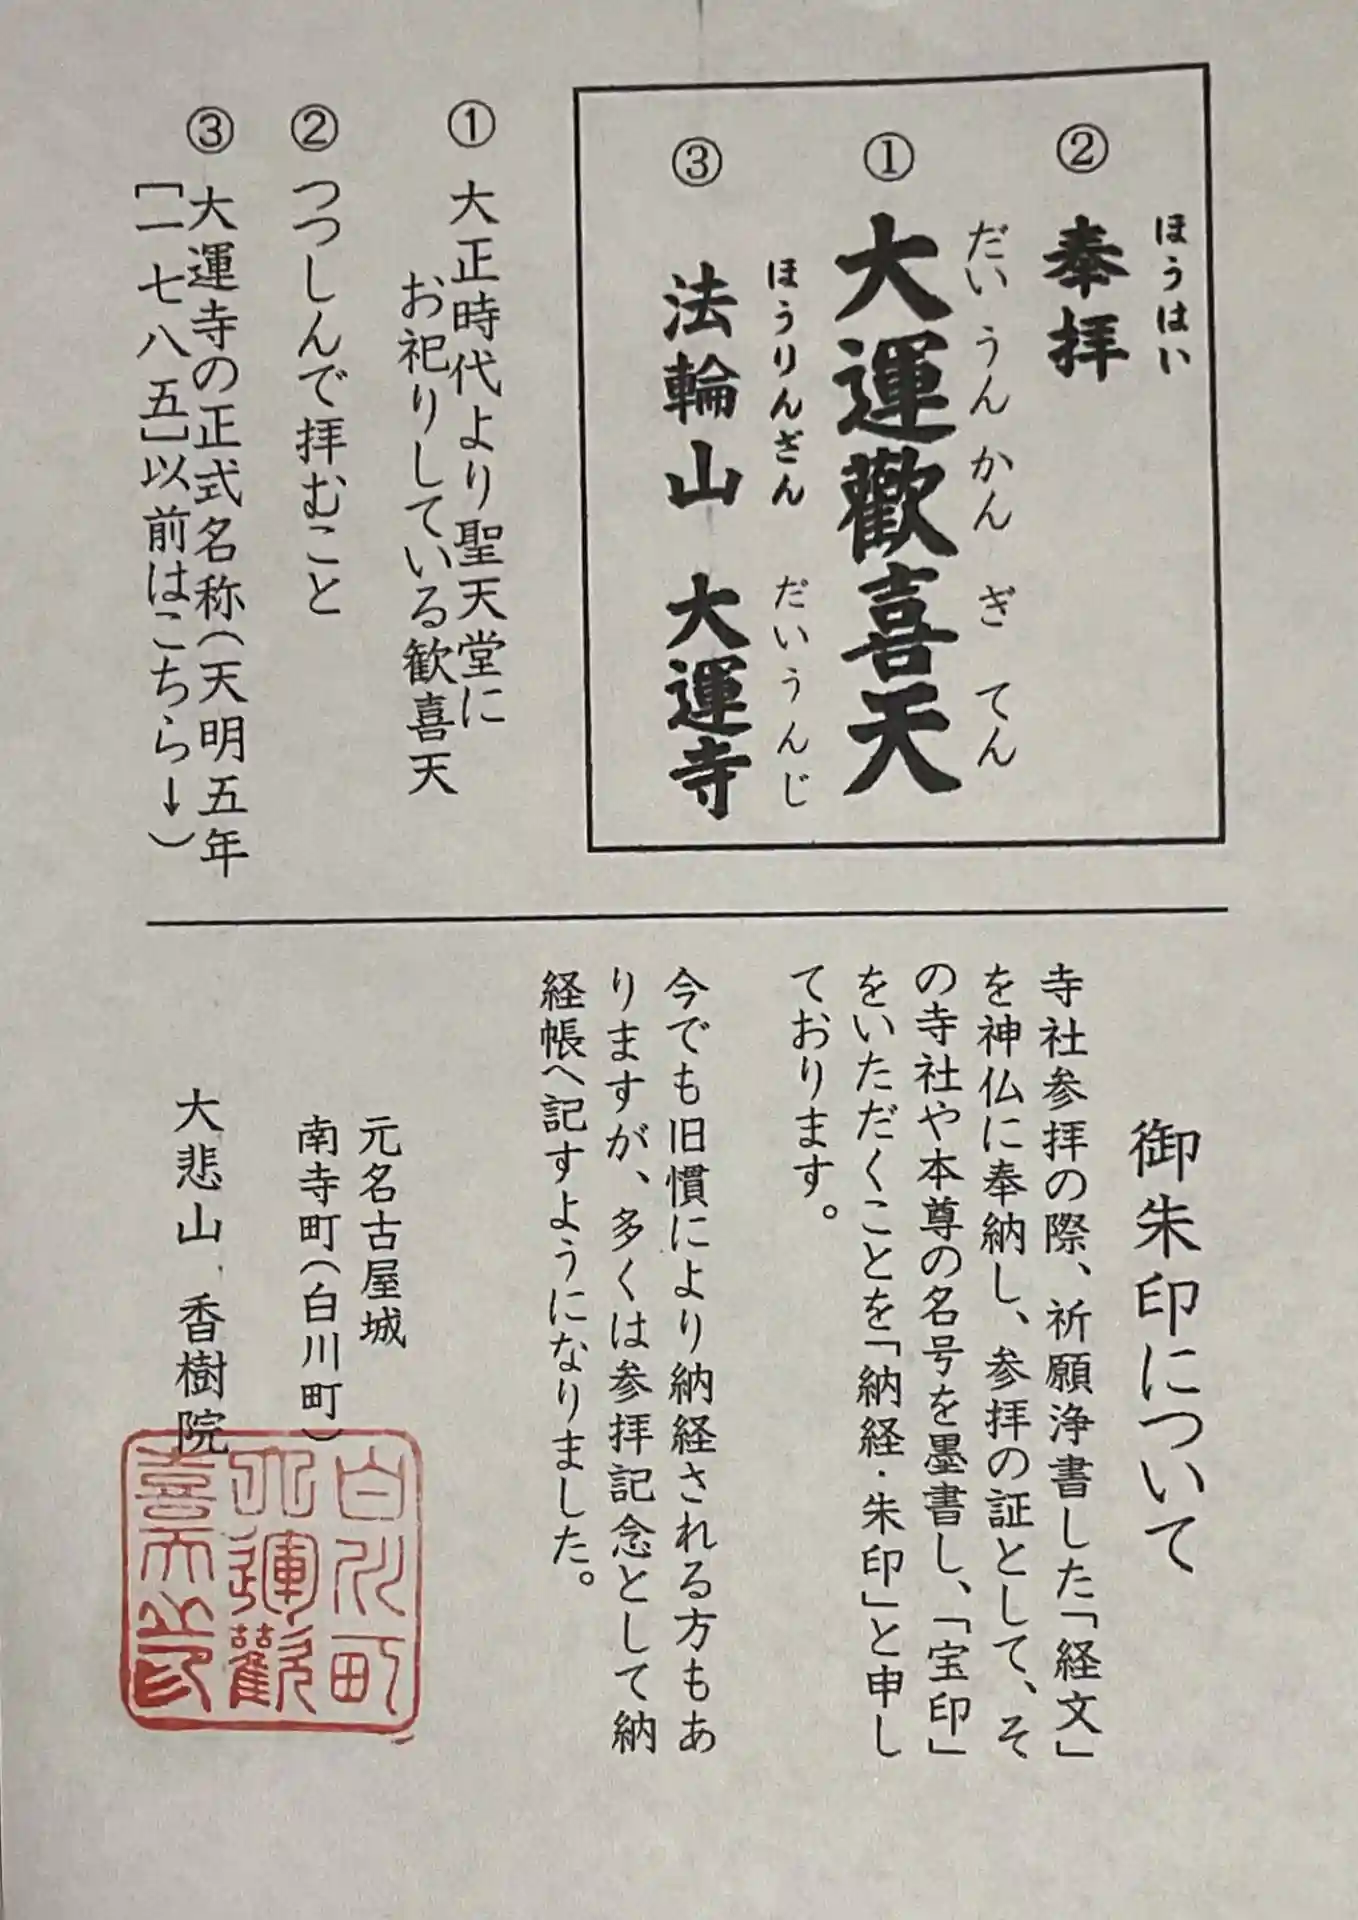 ほうはい
② 奉拝
だいうんかんぎてん
① 大運歡喜天
ほうりんざん だいうんじ
③ 法輪山 大運寺
① 大正時代より聖天堂に
お祀りしている歓喜天
② つつしんで拝むこと
③ 大運寺の正式名称(天明五年
[一七八五]以前はこちら→)
御朱印について
寺社参拝の際、祈願浄書した「経文」
を神仏に奉納し、参拝の証として、そ
の寺社や本尊の名号を墨書し、「宝印」
をいただくことを「納経・朱印」と申し
ております。
今でも旧慣により納経される方もあ
りますが、多くは参拝記念として納
経帳へ記すようになりました。
元名古屋城
南寺町(白川町)
大悲山 香樹院
白川町
大運歡
喜天印